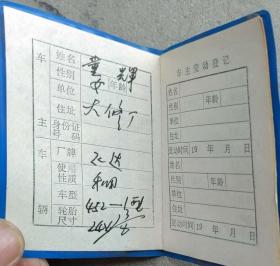 车主
姓名 董辉
性别 女 年龄
单位
住址 大修厂
身份证号码
车辆
厂牌
使用性质 私用
车型
轮胎尺寸
车主变动登记
姓名
性别 年龄
单位
住址
变动时间 19 年 月 日
姓名
性别 年龄
单位
住址
变动时间 19 年 月 日